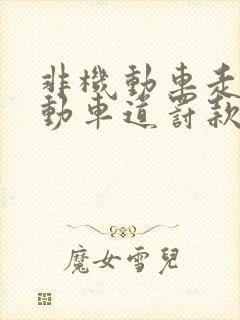 非機動車走
動車道罰款
魔女雪兒